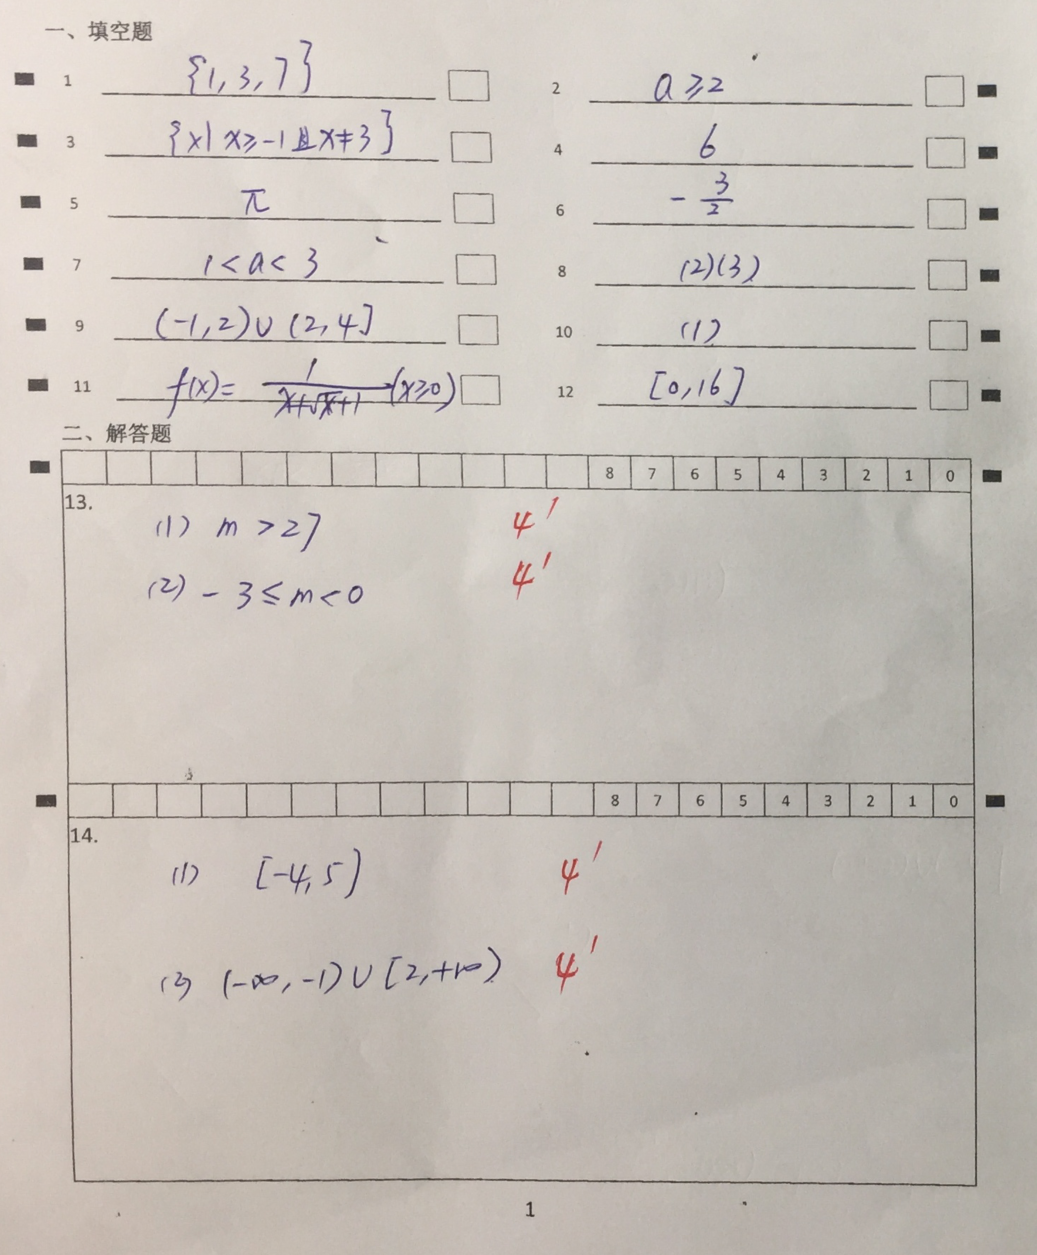 一、填空题
1 {1,3,7} 2 a≥2
3 {x|x≥-1且x≠3} 4 6
5 π 6 -3/2
7 1<a<3 8 (2)(3)
9 (-1,2)∪(2,4] 10 (1)
11 f(x)=1/(x+√x+1)(x≥0) 12 [0,16]
二、解答题
8 7 6 5 4 3 2 1 0
13.
(1) m>27 4'
(2) -3≤m<0 4'
8 7 6 5 4 3 2 1 0
14.
(1) [-4,5) 4'
(2) (-∞,-1)∪[2,+∞) 4'
1